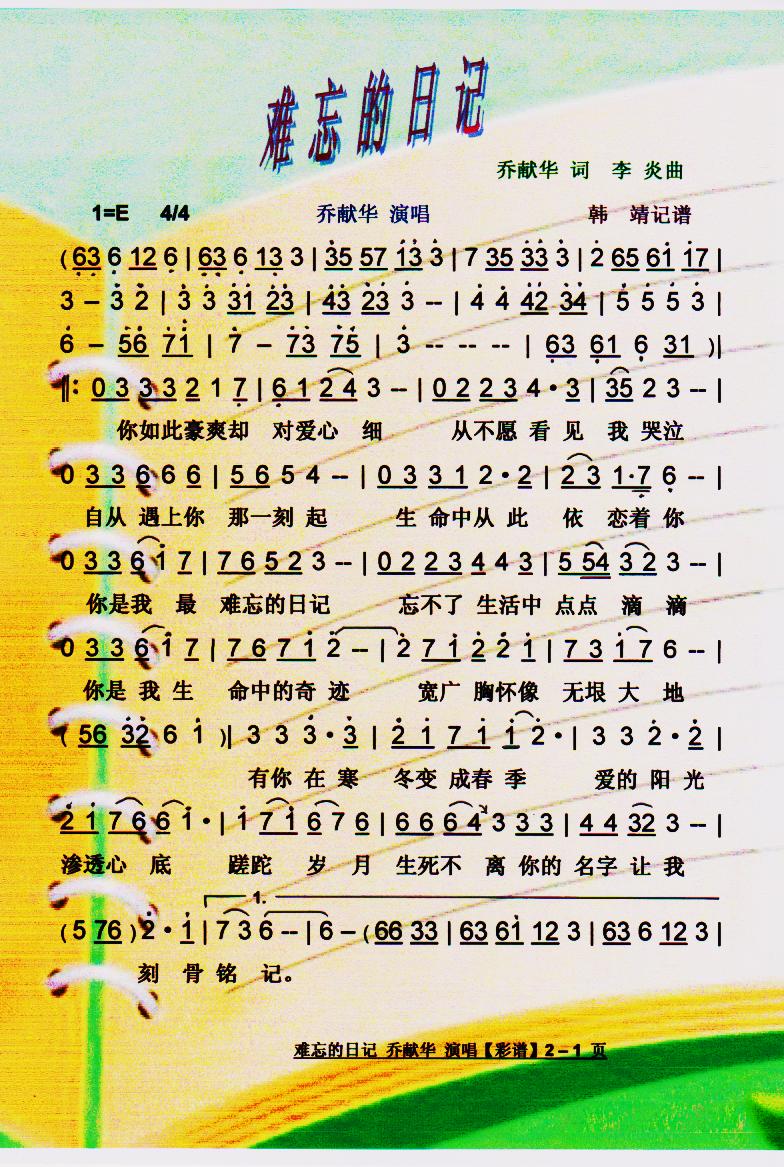 难忘的日记
乔献华 词 李 炎曲
1=E 4/4 乔献华 演唱 韩 靖记谱
( 63 6 12 6 | 63 6 13 3 | 35 57 13 3 | 7 35 33 3 | 2 65 61 17 |
3 – 3 2 | 3 3 31 23 | 43 23 3 -- | 4 4 42 34 | 5 5 5 3 |
6 – 56 71 | 7 – 73 75 | 3 -- -- -- | 63 61 6 31 )|
‖: 0 3 3 3 2 1 7 | 6 1 2 4 3 -- | 0 2 2 3 4 · 3 | 35 2 3 -- |
你如此豪爽却 对爱心 细 从不愿 看 见 我 哭泣
0 3 3 6 6 6 | 5 6 5 4 -- | 0 3 3 1 2 · 2 | 2 3 1·7 6 -- |
自从 遇上你 那一刻 起 生 命中从 此 依 恋着 你
0 3 3 6 1 7 | 7 6 5 2 3 -- | 0 2 2 3 4 4 3 | 5 54 3 2 3 -- |
你是我 最 难忘的日记 忘不了 生活中 点点 滴 滴
0 3 3 6 1 7 | 7 6 7 1 2 -- | 2 7 1 2 2 1 | 7 3 1 7 6 -- |
你是 我 生 命中的奇 迹 宽广 胸怀像 无垠 大 地
( 56 32 6 1 )| 3 3 3 · 3 | 2 1 7 1 1 2 · | 3 3 2 · 2 |
有你 在 寒 冬变 成春 季 爱的 阳 光
2 1 7 6 6 1 · | 1 7 1 6 7 6 | 6 6 6 4 3 3 3 | 4 4 32 3 -- |
渗透心 底 蹉跎 岁 月 生死不 离 你的 名字 让 我
1.
( 5 76 ) 2 · 1 | 7 3 6 -- | 6 – ( 66 33 | 63 61 12 3 | 63 6 12 3 |
刻 骨 铭 记。
难忘的日记 乔献华 演唱【彩谱】2 – 1 页